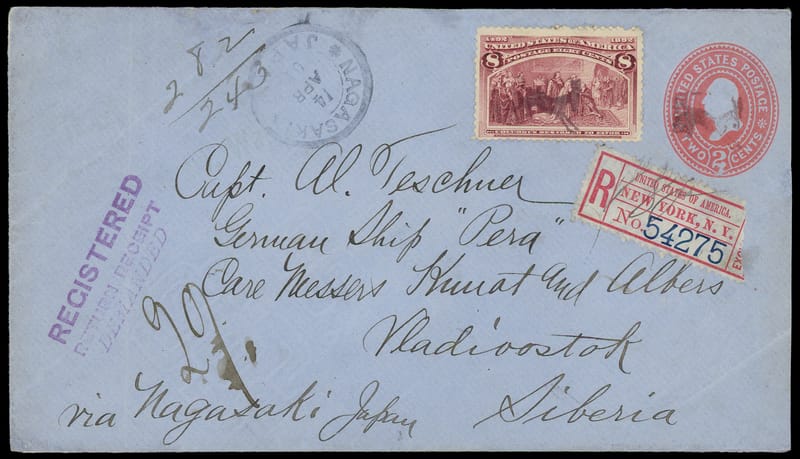 282
243
NAGASAKI
JAPAN
14
APR
1492 1892
UNITED STATES OF AMERICA
POSTAGE EIGHT CENTS
8 8
COLUMBUS RESTORED TO FAVOR
UNITED STATES POSTAGE
2
TWO CENTS
REGISTERED
RETURN RECEIPT
DEMANDED
R
UNITED STATES OF AMERICA.
NEW YORK, N. Y.
No. 54275
Capt. Al. Teschner
German Ship "Pera"
Care Messers Kunst and Albers
Vladivostok
Siberia
29
via Nagasaki Japan